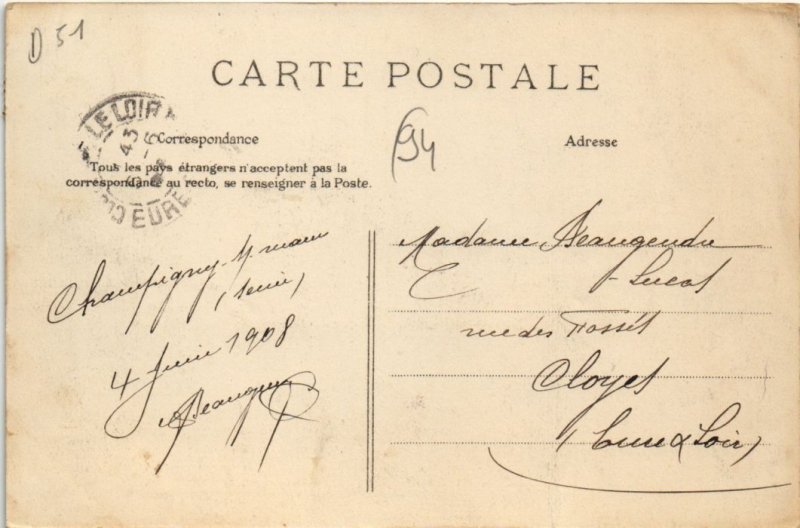 D 51
CARTE POSTALE
94
Correspondance
Adresse
Tous les pays étrangers n'acceptent pas la
correspondance au recto, se renseigner à la Poste.
LE LOIR
43
EURE
Champigny s/ marne
(Seine)
4 Juin 1908
Madame Beaugendre
Lucas
rue des Fossés
Cloyes
(Eure & Loir)